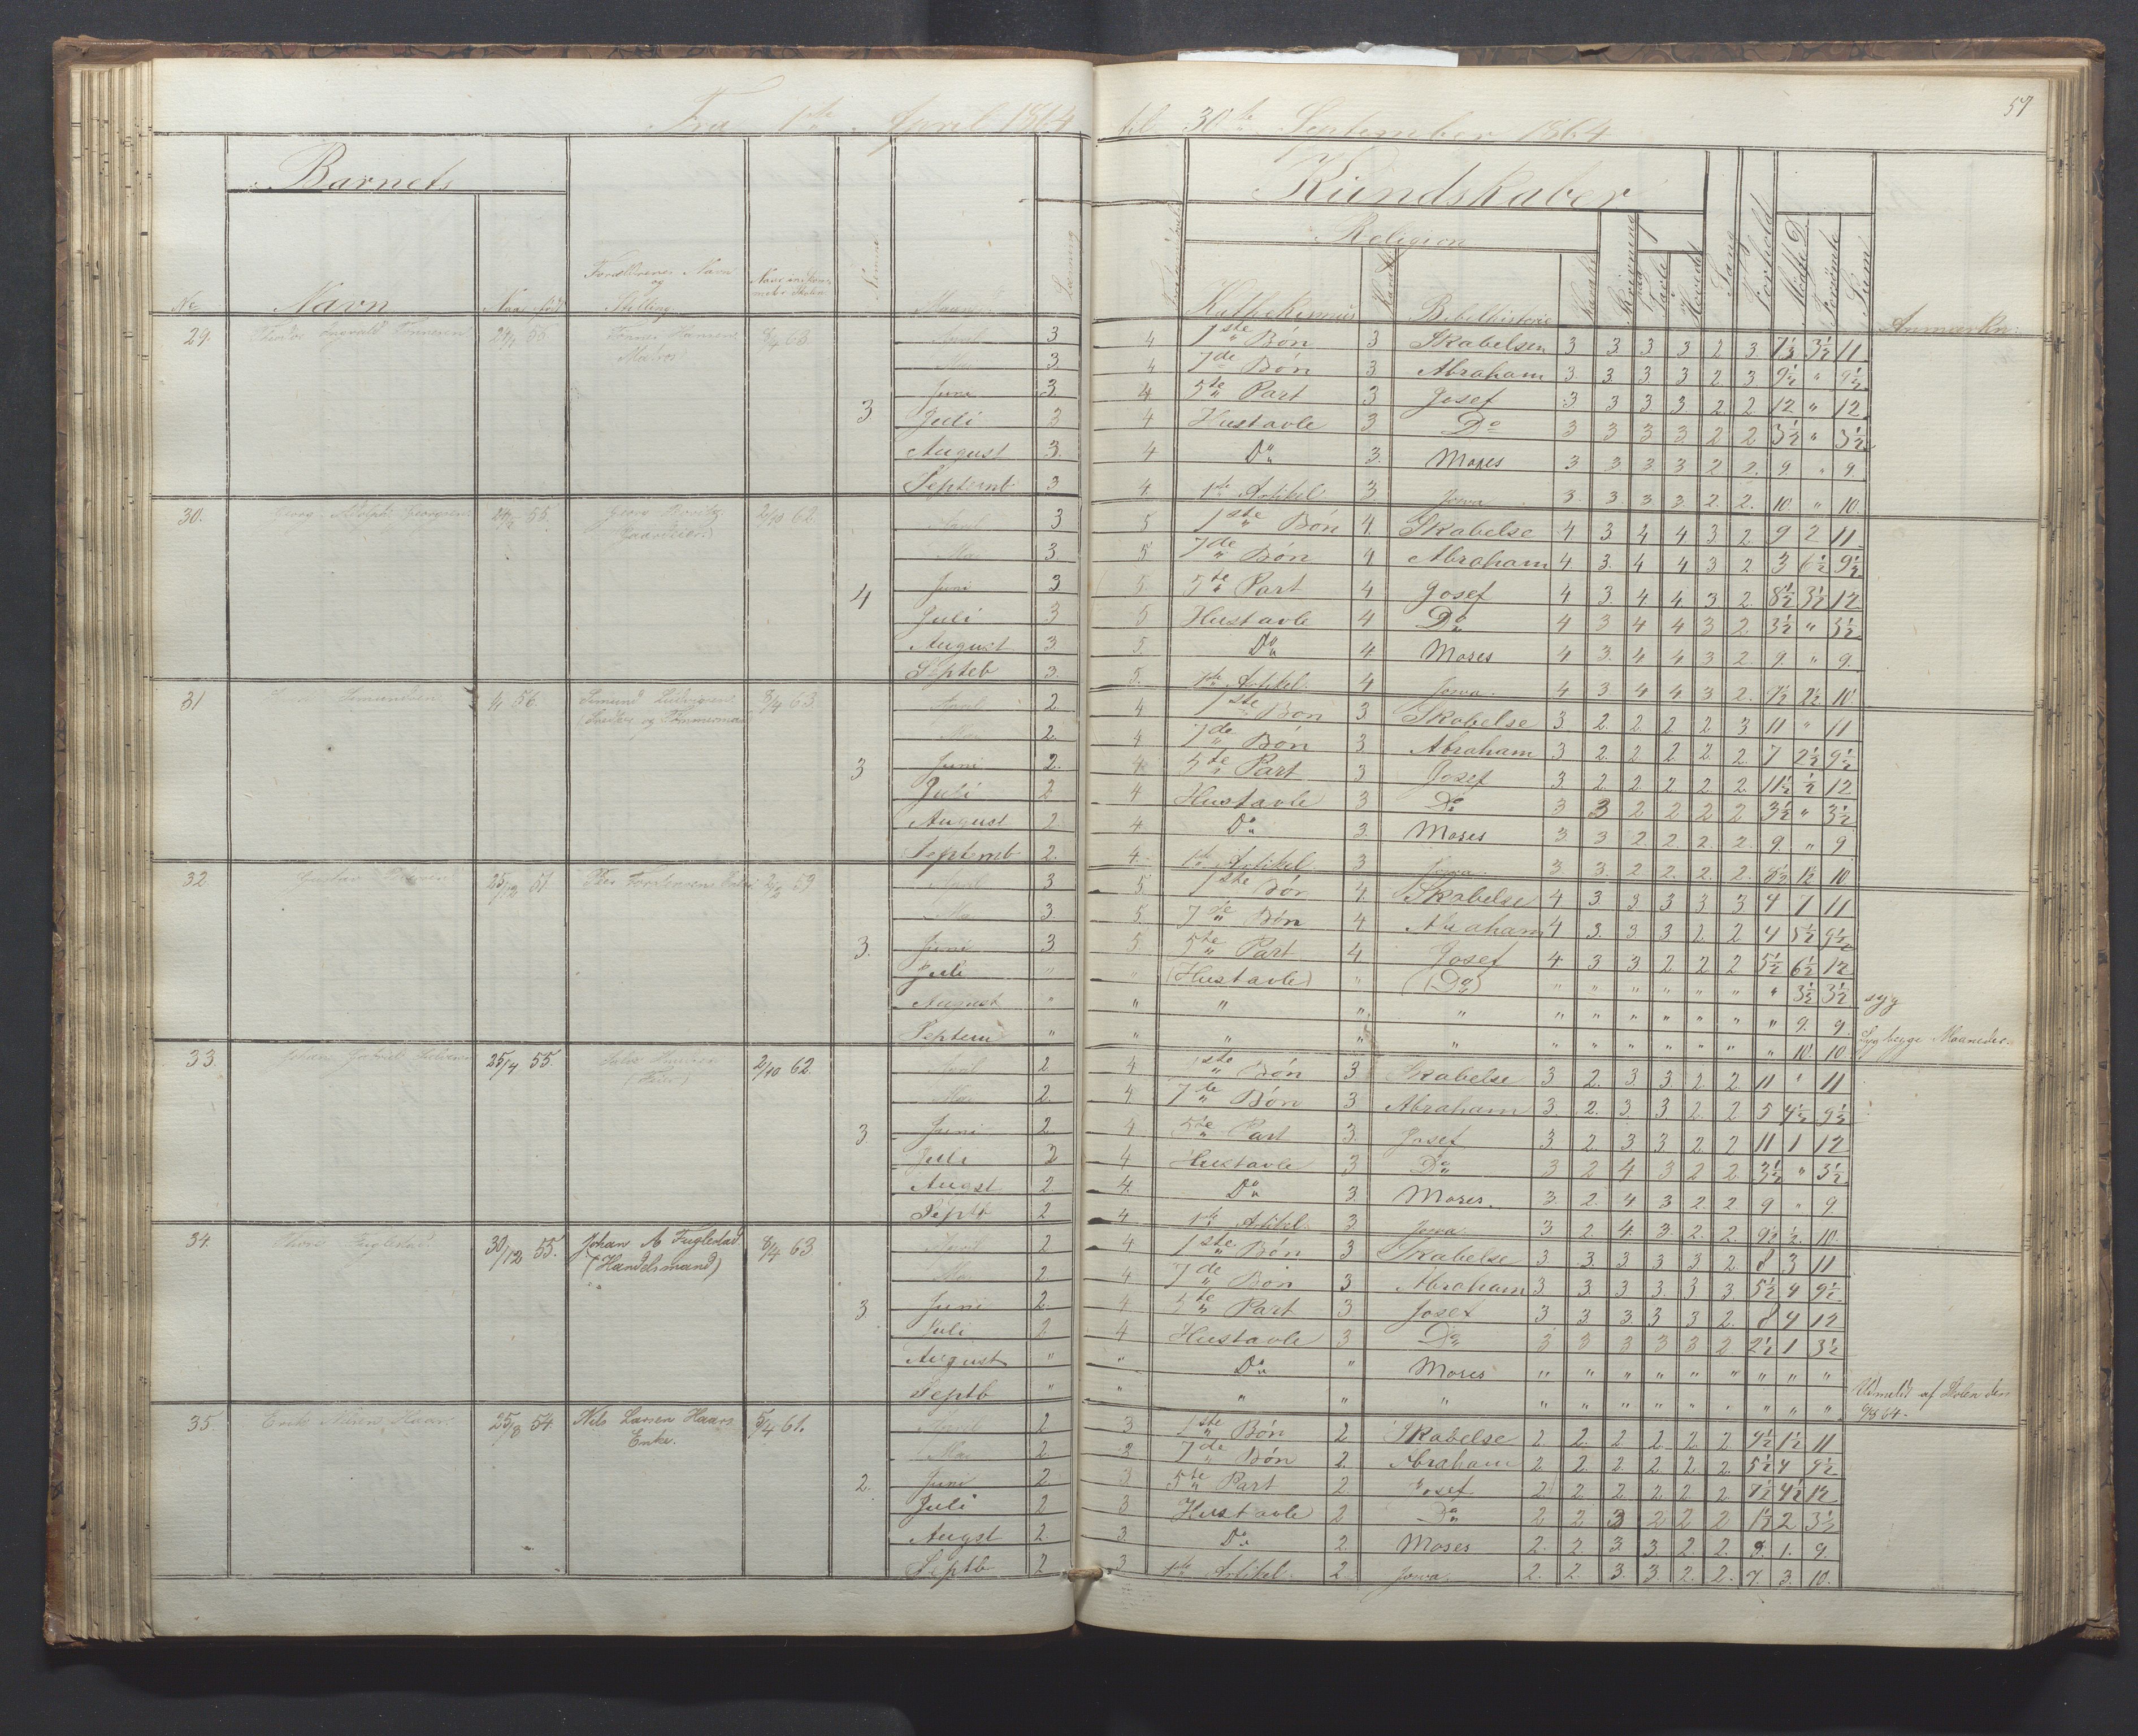 Fra 1ste April 1864 til 30te September 1864
57
Barnets
Kundskaber
Religion
No
Navn
Naar født
Forældrenes Navn
og
Stilling
Evne
Læsning
Kathekismus
Karakt
Bibelhistorie
Karakt
Skrivning
Tavle
Hoved
Sang
Forhold
Mødte D.
Forsømte
Sum
Anmærkn:
29.
24/1 55
Tønnes Hansen
8/4 63
April 3 4 1ste Bøn 3 Skabelsen 3 3 3 3 2 3 7½ 3½ 11
Matros
Mai 3 4 7de Bøn 3 Abraham 3 3 3 3 2 3 9½ " 9½
Juni 3 4 5te Part 3 Josef 3 3 3 3 2 2 12 " 12
3
Juli 3 4 Hustavle 3 Do 3 3 3 3 2 2 3½ " 3½
August 3. 4 Do 3. Moses 3 3 3 3 2 2. 9. " 9.
Septemb 3 4. 1ste Artikel 3 3. 3 3. 3 2. 2. 10. " 10.
30.
55.
2/10 62
April 3 5 1ste Bøn 4. Skabelse 4 3 4 4 3 2. 9 2 11
Gaardeier
Mai 3. 5 7de Bøn 4 Abraham 4 3. 4 4 3 2 3 6½ 9½
Juni 3 5 5te Part 4 Josef 4 3. 4. 4 3 2. 8½ 3½ 12
4
Juli 3 5 Hustavle 4 Do 4 3 4 4 3 2. 3½ " 3½
August 3 5. Do 4. Moses 4 3. 4 4 3 2. 9. " 9.
Septeb 3. 5. 1ste Artikel. 4 4 3 4 4 3 2. 7½ 2½ 10.
31
Simundsen
56.
Simund Ludvigsen
8/4 63.
April 2 4 1ste Bøn 3 Skabelse 3 2. 2. 2 2 3 11 " 11
og Tømmermand
Mai 2. 4 7de Bøn 3 Abraham 3 2. 2 2 2. 2. 7 2½ 9½
Juni 2. 4. 5te Part 3 Josef 3 2. 2. 2 2. 2. 11½ ½ 12
3
Juli 2 4 Hustavle 3 Do 3 3 2 2 2 2 3½ " 3½
August 2 4. Do 3. Moses 3 3 2 2. 2. 2. 9. " 9
Septemb 2. 4. 1ste Artikel 3 3. 3. 2 2. 2. 2. 8½ 1½ 10
32
Gustav
25/12 51
2/2 59
April 3 5 1ste Bøn 4. Skabelse 4 3. 3 3 3 3 4 7 11
Mai 3 5. 7de Bøn 4 Abraham 4 3. 3 3 2 2 4 5½ 9½
Juni 3 5 5te Part 4 Josef 4 3 3 2 2 2 5½ 6½ 12
3.
Juli " " (Hustavle) " (Do) " " " " " " " 3½ 3½ syg
August " " " " " " " " " " " " 9. 9.
Septem " " " " " " " " " " " " 10. 10. Syg begge Maaneder
33.
Johan Gabriel
25/4 55.
2/10 62.
April 2 4 1ste Bøn 3 Skabelse 3 2. 3. 3. 2 2. 11 " 11
Mai 2. 4 7de Bøn 3 Abraham 3. 2. 3. 3 2. 2 5 4½ 9½
Juni 2 4 5te Part 3. Josef 3 2. 3 3. 2. 2 11 1 12
3
Juli 2 4 Hustavle 3 Do 3 2 4 3 2 2. 3½ " 3½
Augst 2 4. Do 3. Moses. 3. 2. 4 3 2. 2. 9 " 9.
Septb 2 4 1ste Artikel. 3. 3 2. 4. 3. 2. 2. 9½ ½. 10.
34.
Fuglestad
30/12 55.
Johan A Fuglestad
8/4 63
April 2 4 1ste Bøn 3 Skabelse 3. 3. 3 3 3 2. 8 3 11
(Handelsmand)
Mai 2 4 7de Bøn 3 Abraham 3 3. 3. 3. 3 3. 5½ 4 9½
Juni 2. 4 5te Part 3 Josef 3 3 3. 3 3 2. 8 4 12
3
Juli 2 4 Hustavle 3 Do 3 3 3 3 3 2 2½ 1 3½
August " " Do " Moses " " " " " " " " "
Septb " " " " " " " " " " " " " " Udmeldt af Skolen den
9/8 64.
35
Nilsen Haar
25/8 54
Nils Larsen Haars
5/4 61.
April 2 3 1ste Bøn 2 Skabelse 2. 2. 2 2. 2 2 9½ 1½ 11
Enke.
Mai 2. 2 7de Bøn 2. Abraham 2 2. 2. 2. 2. 2. 5½ 4 9½
2.
Juni 2. 3 5te Part 2. Josef 2. 2. 2. 2 2 2. 7½ 4½ 12
Juli 2 3 Hustavle 2 Do 2 2 3 2 2 2 1½ 2 3½
Augst 2. 3. Do 2. Moses 2. 2. 3. 3. 2 2. 8. 1. 9.
Septb 2 3 1ste Artikel. 2. 2. 2. 3. 3. 2. 2. 7. 3. 10.